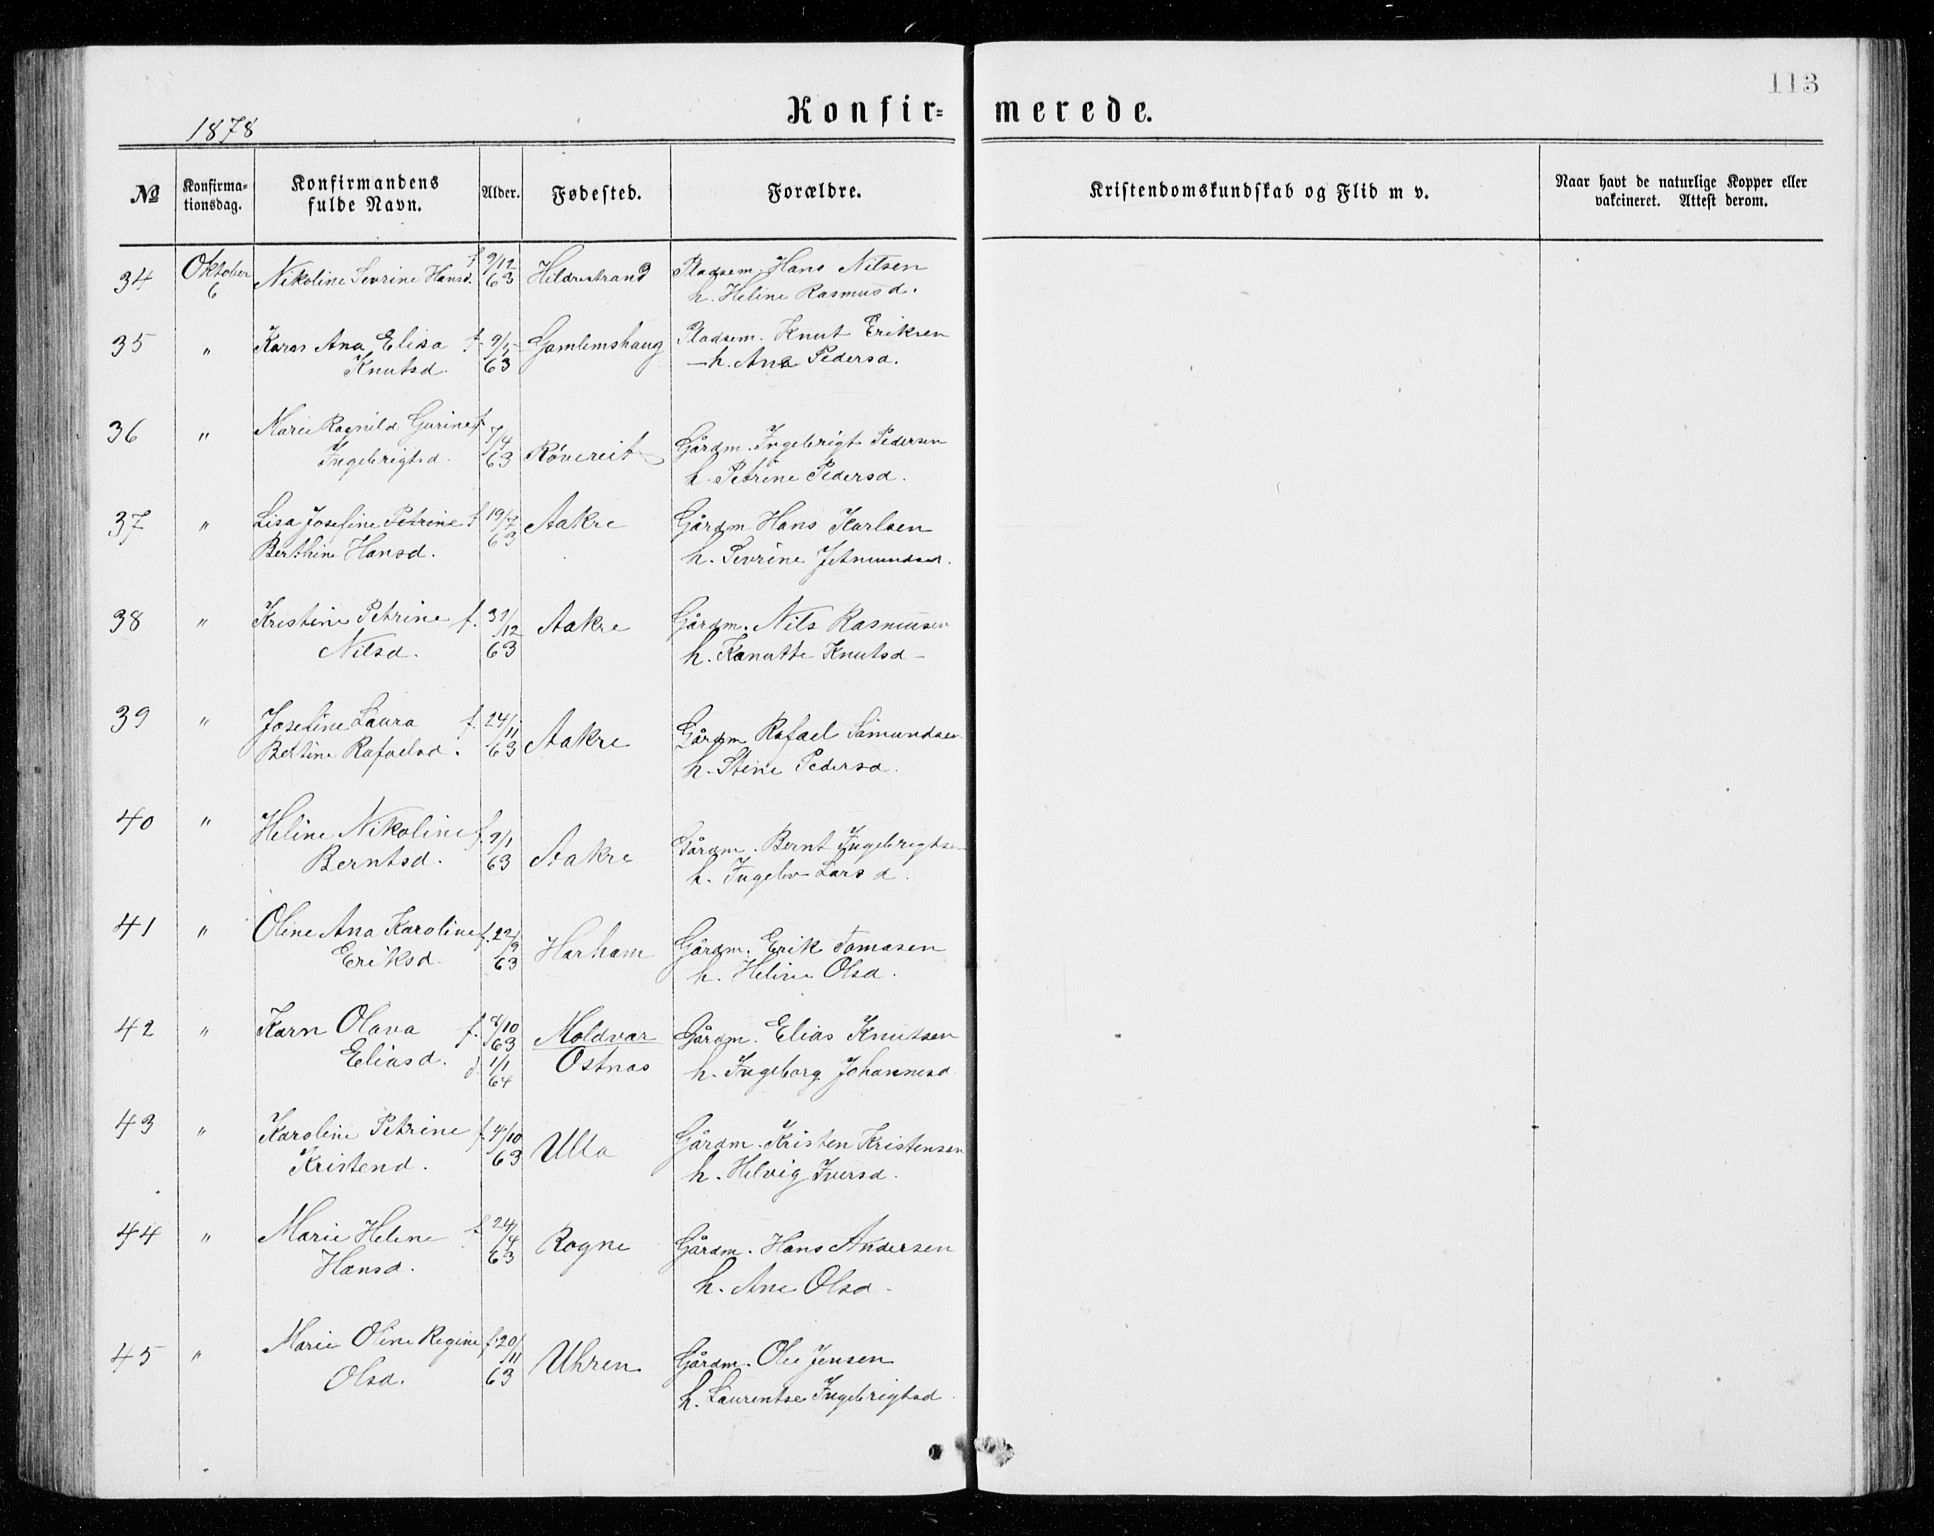 113
Konfir=merede.
1878
No
Konfirma-
tionsdag.
Konfirmandens
fulde Navn.
Alder.
Fødested.
Forældre.
Kristendomskundskab og Flid m v.
Naar havt de naturlige Kopper eller
vakcineret. Attest derom.
34 Oktober 6 Nikoline Sevrine Hansd. f 9/12 63 Hildrestrand Pladsem. Hans Nilsen
h. Heline Rasmusd.
35 " Karn Ana Elisa f. 9/5 Gamlemshaug Pladsem. Knut Eriksen
Knutsd. 63 h. Ana Pedersd.
36 " Marie Ragnild Gurine f. 7/4 Røvereit Gårdm. Ingebrigt Pedersen
Ingebrigtsd. 63 h. Petrine Pedersd.
37 " Lisa Josefine Petrine f 19/7 Aakre Gårdm Hans Karlsen
Berthine Hansd. 63 h. Sevrine
38 " Kristine Petrine f. 31/12 Aakre Gårdm. Nils Rasmusen
Nilsd. 63 h. Kanutte Knutsd
39 " Josefine Laura f. 24/11 Aakre Gårdm Rafael Simundsen
Bertine Rafaelsd. 63 h. Stine Pedersd.
40 " Heline Nikoline f. 9/1 Aakre Gårdm. Bernt Ingebrigtsen
Berntsd. 63 h. Larsd.
41 " Oline Ana Karoline f. 22/9 Harham Gårdm. Erik Tomasen
Eriksd. 63 h. Heline Olsd.
42 " Karn Olava f. /10 63 Moldvær Gårdm. Elias Knutsen
Eliasd. d. 1/1 64 Ostnas h. Ingeborg Johannesd
43 " Karoline Petrine f. 4/10 Ulla Gårdm. Kristen Kristensen
Kristend. 63 h. Helvig Iversd.
44 " Marie Helene f. 24/4 Rogne Gårdm. Hans Andersen
Hansd. 63 h. Ane Olsd.
45 " Marie Oline Regine f. 20/11 Uhren Gårdm. Ole Jensen
Olsd. 63 h. Laurentse Ingebrigtsd.